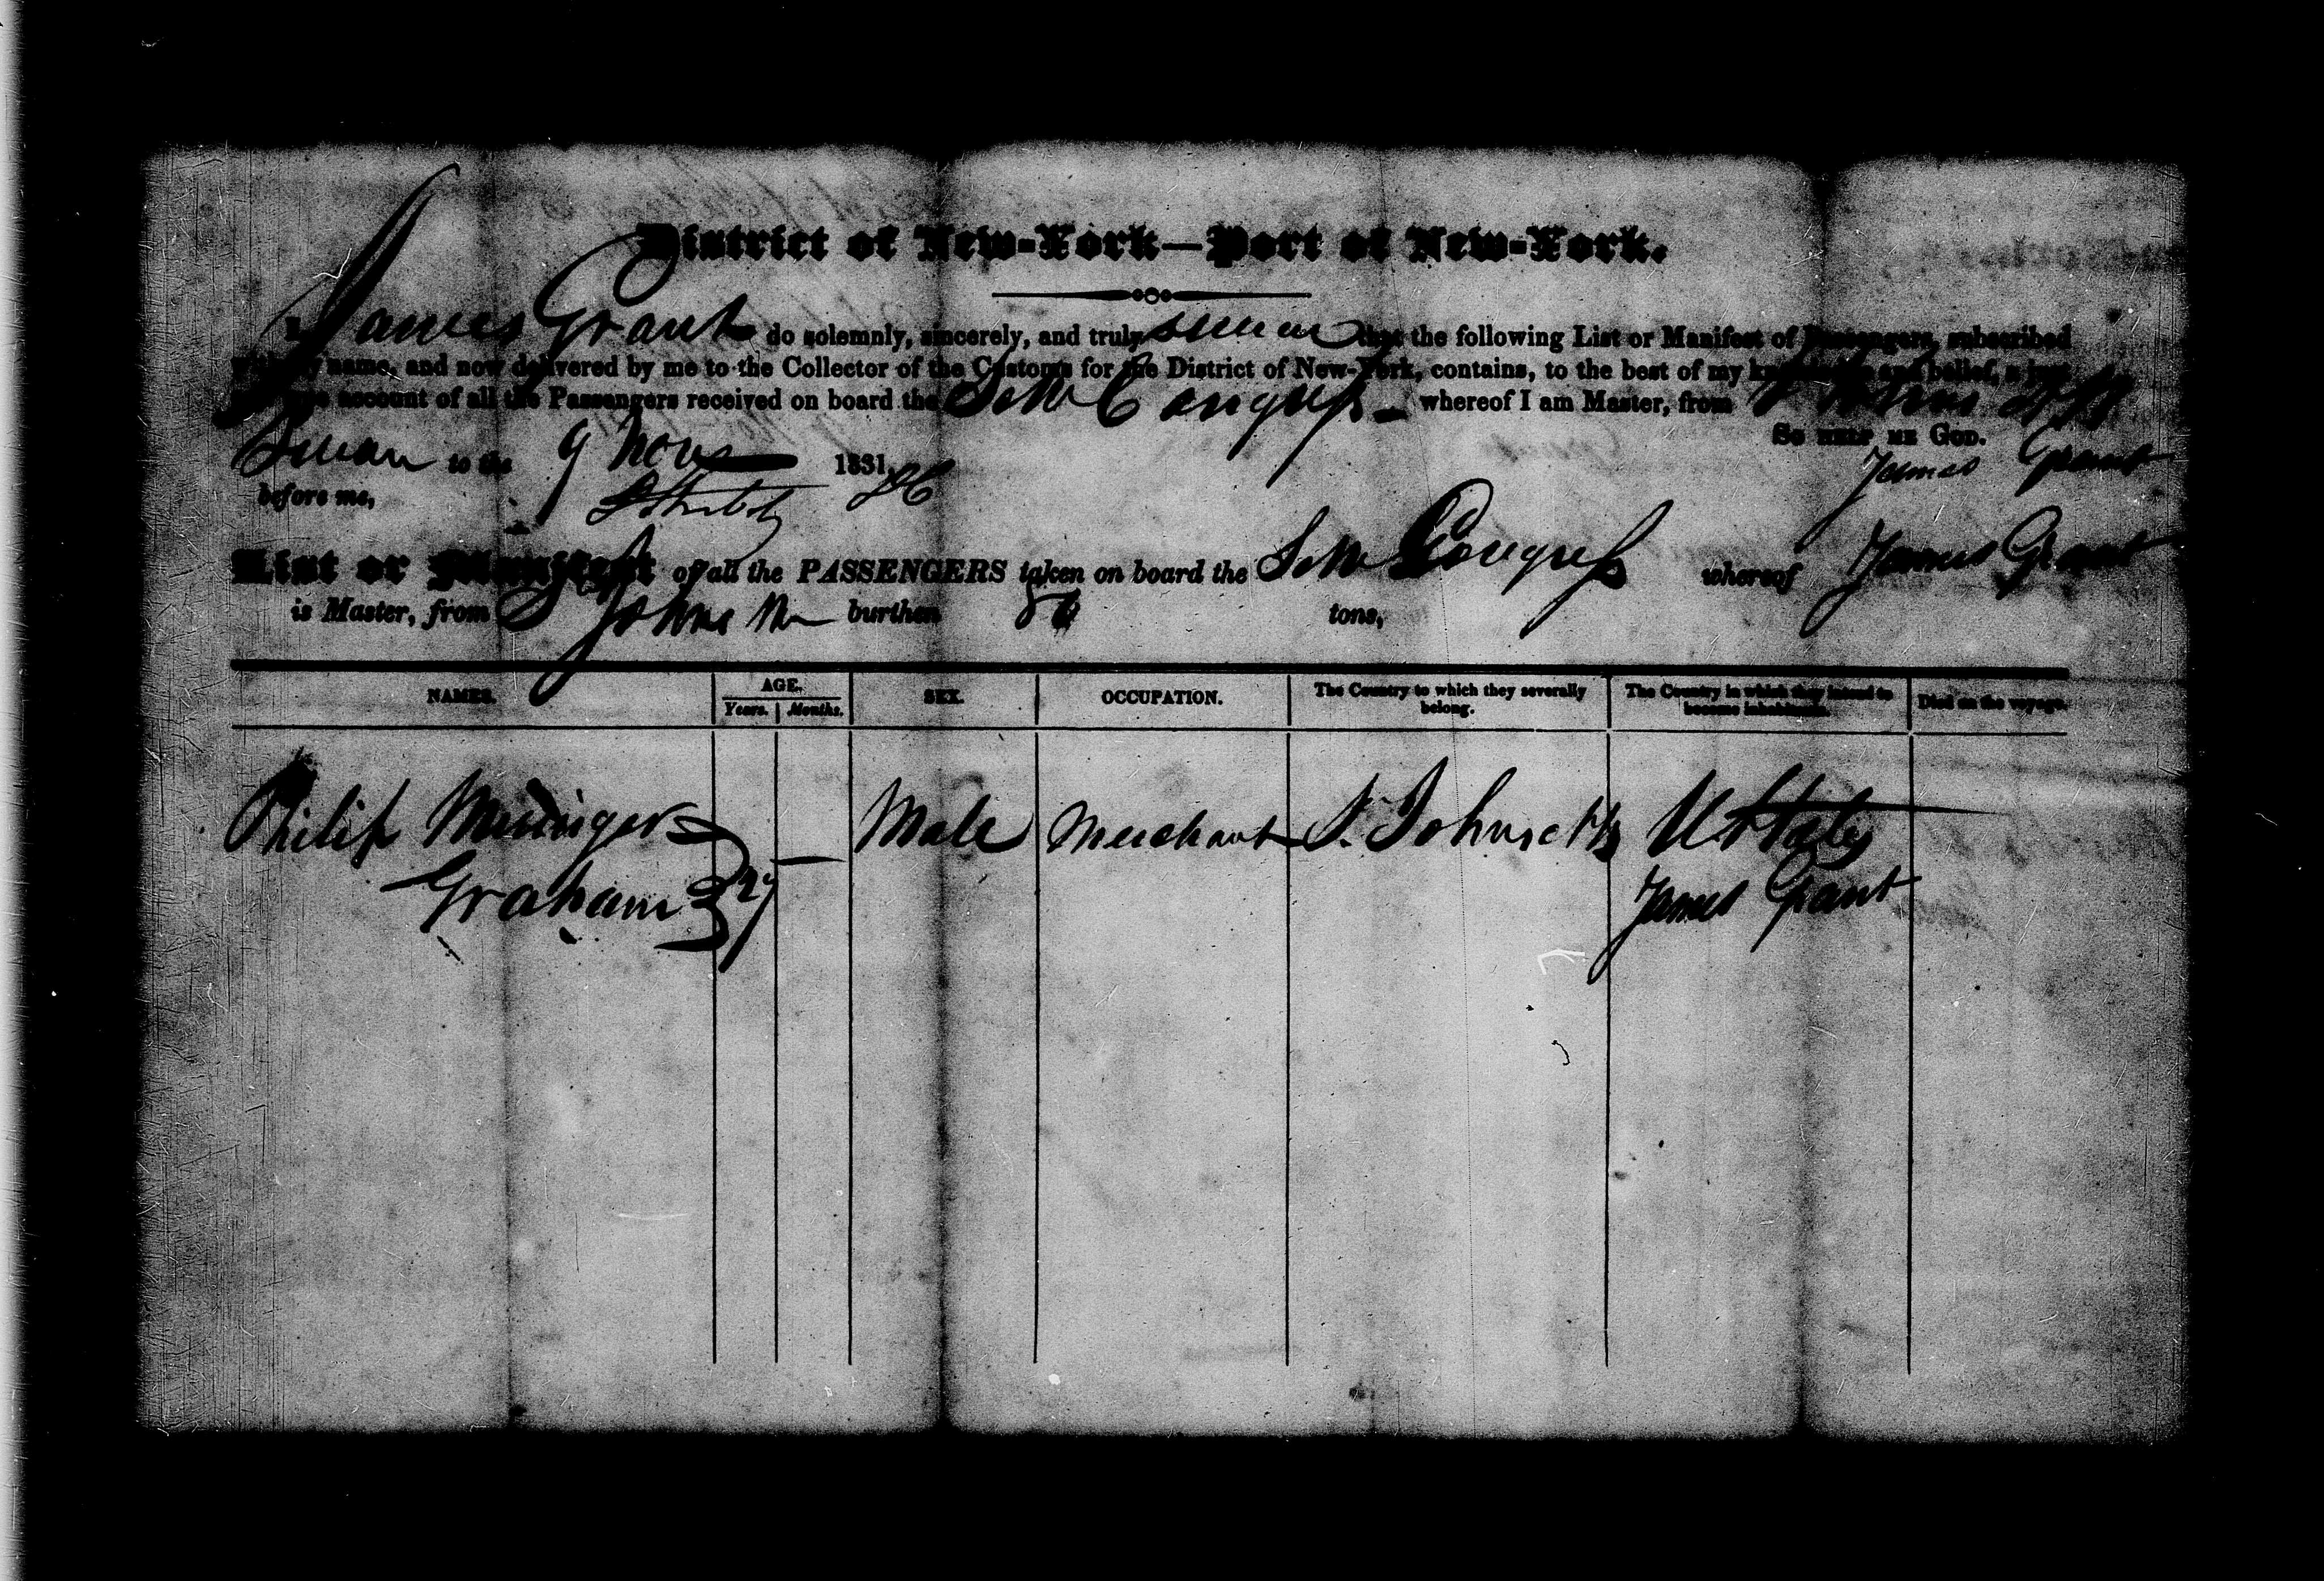 District of New-York—Port of New-York.
I James Grant do solemnly, sincerely, and truly swear that the following List or Manifest of Passengers, subscribed
with my name, and now delivered by me to the Collector of the Customs for the District of New-York, contains, to the best of my knowledge and belief, a just
and true account of all the Passengers received on board the Schr Congress whereof I am Master, from St Johns
So help me God.
Sworn to the 9 Novr 1831
James Grant
before me,
List or Manifest of all the PASSENGERS taken on board the Schr Congress whereof James Grant
is Master, from St Johns burthen tons,
NAMES. AGE. SEX. OCCUPATION. The Country to which they severally belong. The Country in which they intend to become inhabitants. Died on the voyage.
Years. Months.
Philip Male Merchant St. Johns U States
Graham 27 James Grant